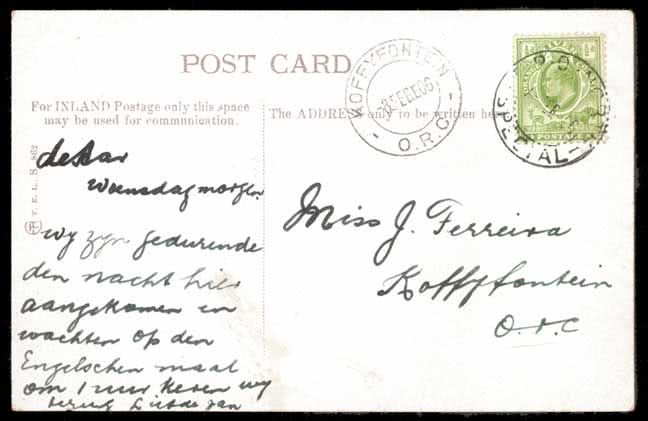 POST CARD
For INLAND Postage only this space
may be used for communication.
The ADDRESS only to be written here
KOFFYFONTEIN
O.R.C.
½d
½d
POSTAGE
SPECIAL
de Aar
Woensdagmorgen
Wy zyn gedurende
den nacht hier
aangekomen en
wachten op den
Engelschen maal
om 1 uur keren wy
terug Liefde van
Miss J. Ferreira
Koffyfontein
O.R.C